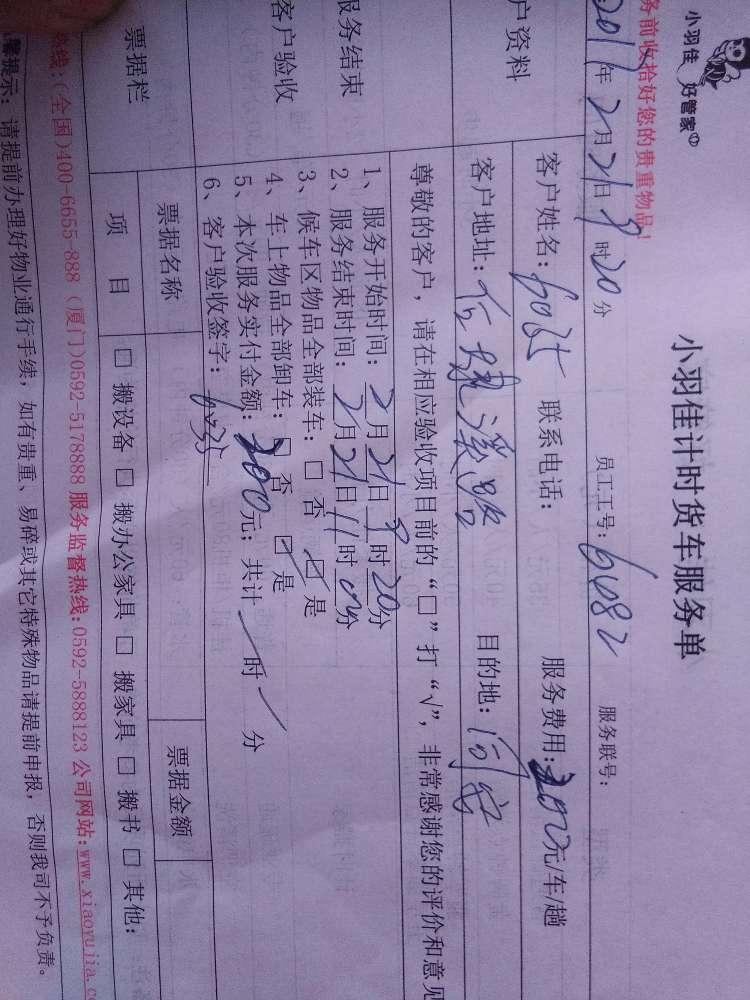 小羽佳 好管家
小羽佳计时货车服务单
务前收拾好您的贵重物品!
2017年2月21日9时20分 员工工号:6082 服务联号:
户资料
客户姓名: 联系电话: 服务费用:200元/车/趟
客户地址: 溪路 目的地:同安
尊敬的客户,请在相应验收项目前的“□”打“√”,非常感谢您的评价和意见
服务结束
客户验收
1、服务开始时间:2月21日9时20分
2、服务结束时间:2月21日11时0分
3、候车区物品全部装车:□ 否 ☑ 是
4、车上物品全部卸车:□ 否 ☑ 是
5、本次服务实付金额:200元;共计 / 时 / 分
6、客户验收签字:
票据栏
票据名称 票据金额
项 目 □ 搬设备 □ 搬办公家具 □ 搬家具 □ 搬书 □ 其他:
热线:(全国)400-6655-888 (厦门)0592-5178888 服务监督热线:0592-5888123 公司网站:www.xiaoyujia.c
馨提示:请提前办理好物业通行手续,如有贵重、易碎或其它特殊物品请提前申报,否则我司不予负责。